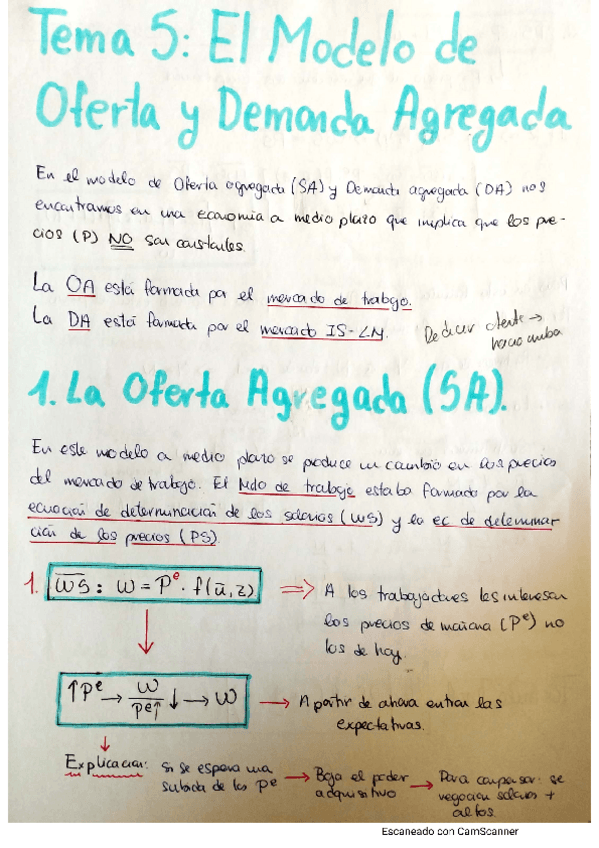 Tema 5: El Modelo de
Oferta y Demanda Agregada
En el modelo de Oferta agregada (SA) y Demanda agregada (DA) nos
encontramos en una economía a medio plazo que implica que los pre-
cios (P) NO son constantes.
La OA está formada por el mercado de trabajo.
La DA está formada por el mercado IS-LM.
Deducir
hacia arriba
1. La Oferta Agregada (SA).
En este modelo a medio plazo se produce un cambio en los precios
del mercado de trabajo. El Mdo de trabajo estaba formado por la
ecuación de determinación de los salarios (WS) y la ec de determinar
ción de los precios (PS).
1. WS: W = Pᵉ · f(ū, z) ⇒ A los trabajadores les interesan
los precios de mañana (Pᵉ) no
los de hoy.
↑Pᵉ → W/Pᵉ↑ ↓ → W → A partir de ahora entran las
expectativas.
Explicación: Si se espera una → Baja el poder → Para compensar: se
subida de los Pᵉ adquisitivo negocian salarios +
altos.
Escaneado con CamScanner